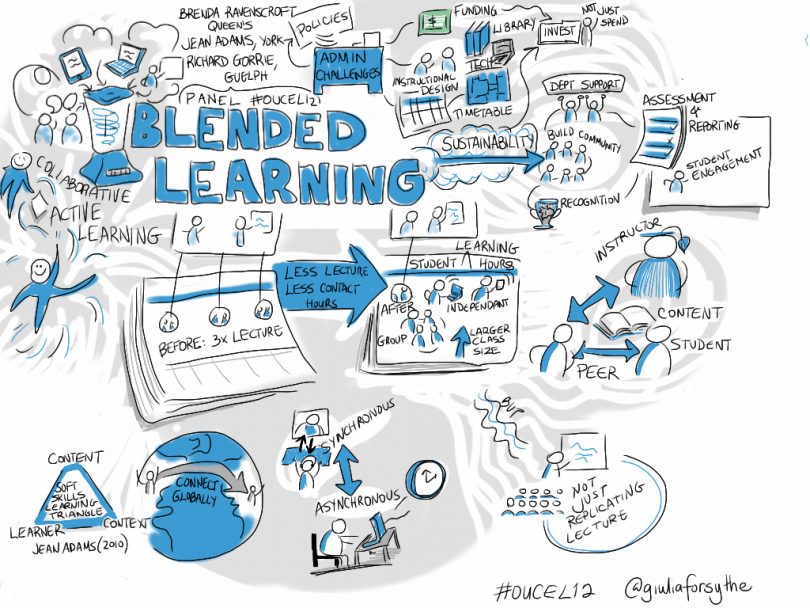 BRENDA RAVENSCROFT
QUEENS
JEAN ADAMS, YORK
RICHARD GORRIE,
GUELPH
(PANEL #OUCEL12)
POLICIES
ADMIN
CHALLENGES
$
FUNDING
LIBRARY
TECH
INSTRUCTIONAL
DESIGN
TIMETABLE
INVEST
NOT JUST
SPEND
BLENDED
LEARNING
SUSTAINABILITY
DEPT SUPPORT
BUILD COMMUNITY
RECOGNITION
ASSESSMENT
&
REPORTING
STUDENT
ENGAGEMENT
COLLABORATIVE
ACTIVE
LEARNING
BEFORE: 3x LECTURE
LESS LECTURE
LESS CONTACT
HOURS
LEARNING
STUDENT ^ HOURS
AFTER
INDEPENDANT
GROUP
LARGER
CLASS
SIZE
INSTRUCTOR
CONTENT
STUDENT
PEER
CONTENT
SOFT
SKILLS
LEARNING
TRIANGLE
LEARNER
CONTEXT
JEAN ADAMS (2010)
CONNECT
GLOBALLY
SYNCHRONOUS
ASYNCHRONOUS
BUT
NOT
JUST
REPLICATING
LECTURE
#OUCEL12
@giuliaforsythe